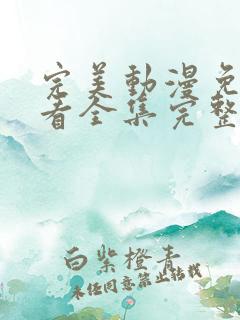 完美動漫免
看全集完整
白紫橙青
未经同意禁止转载